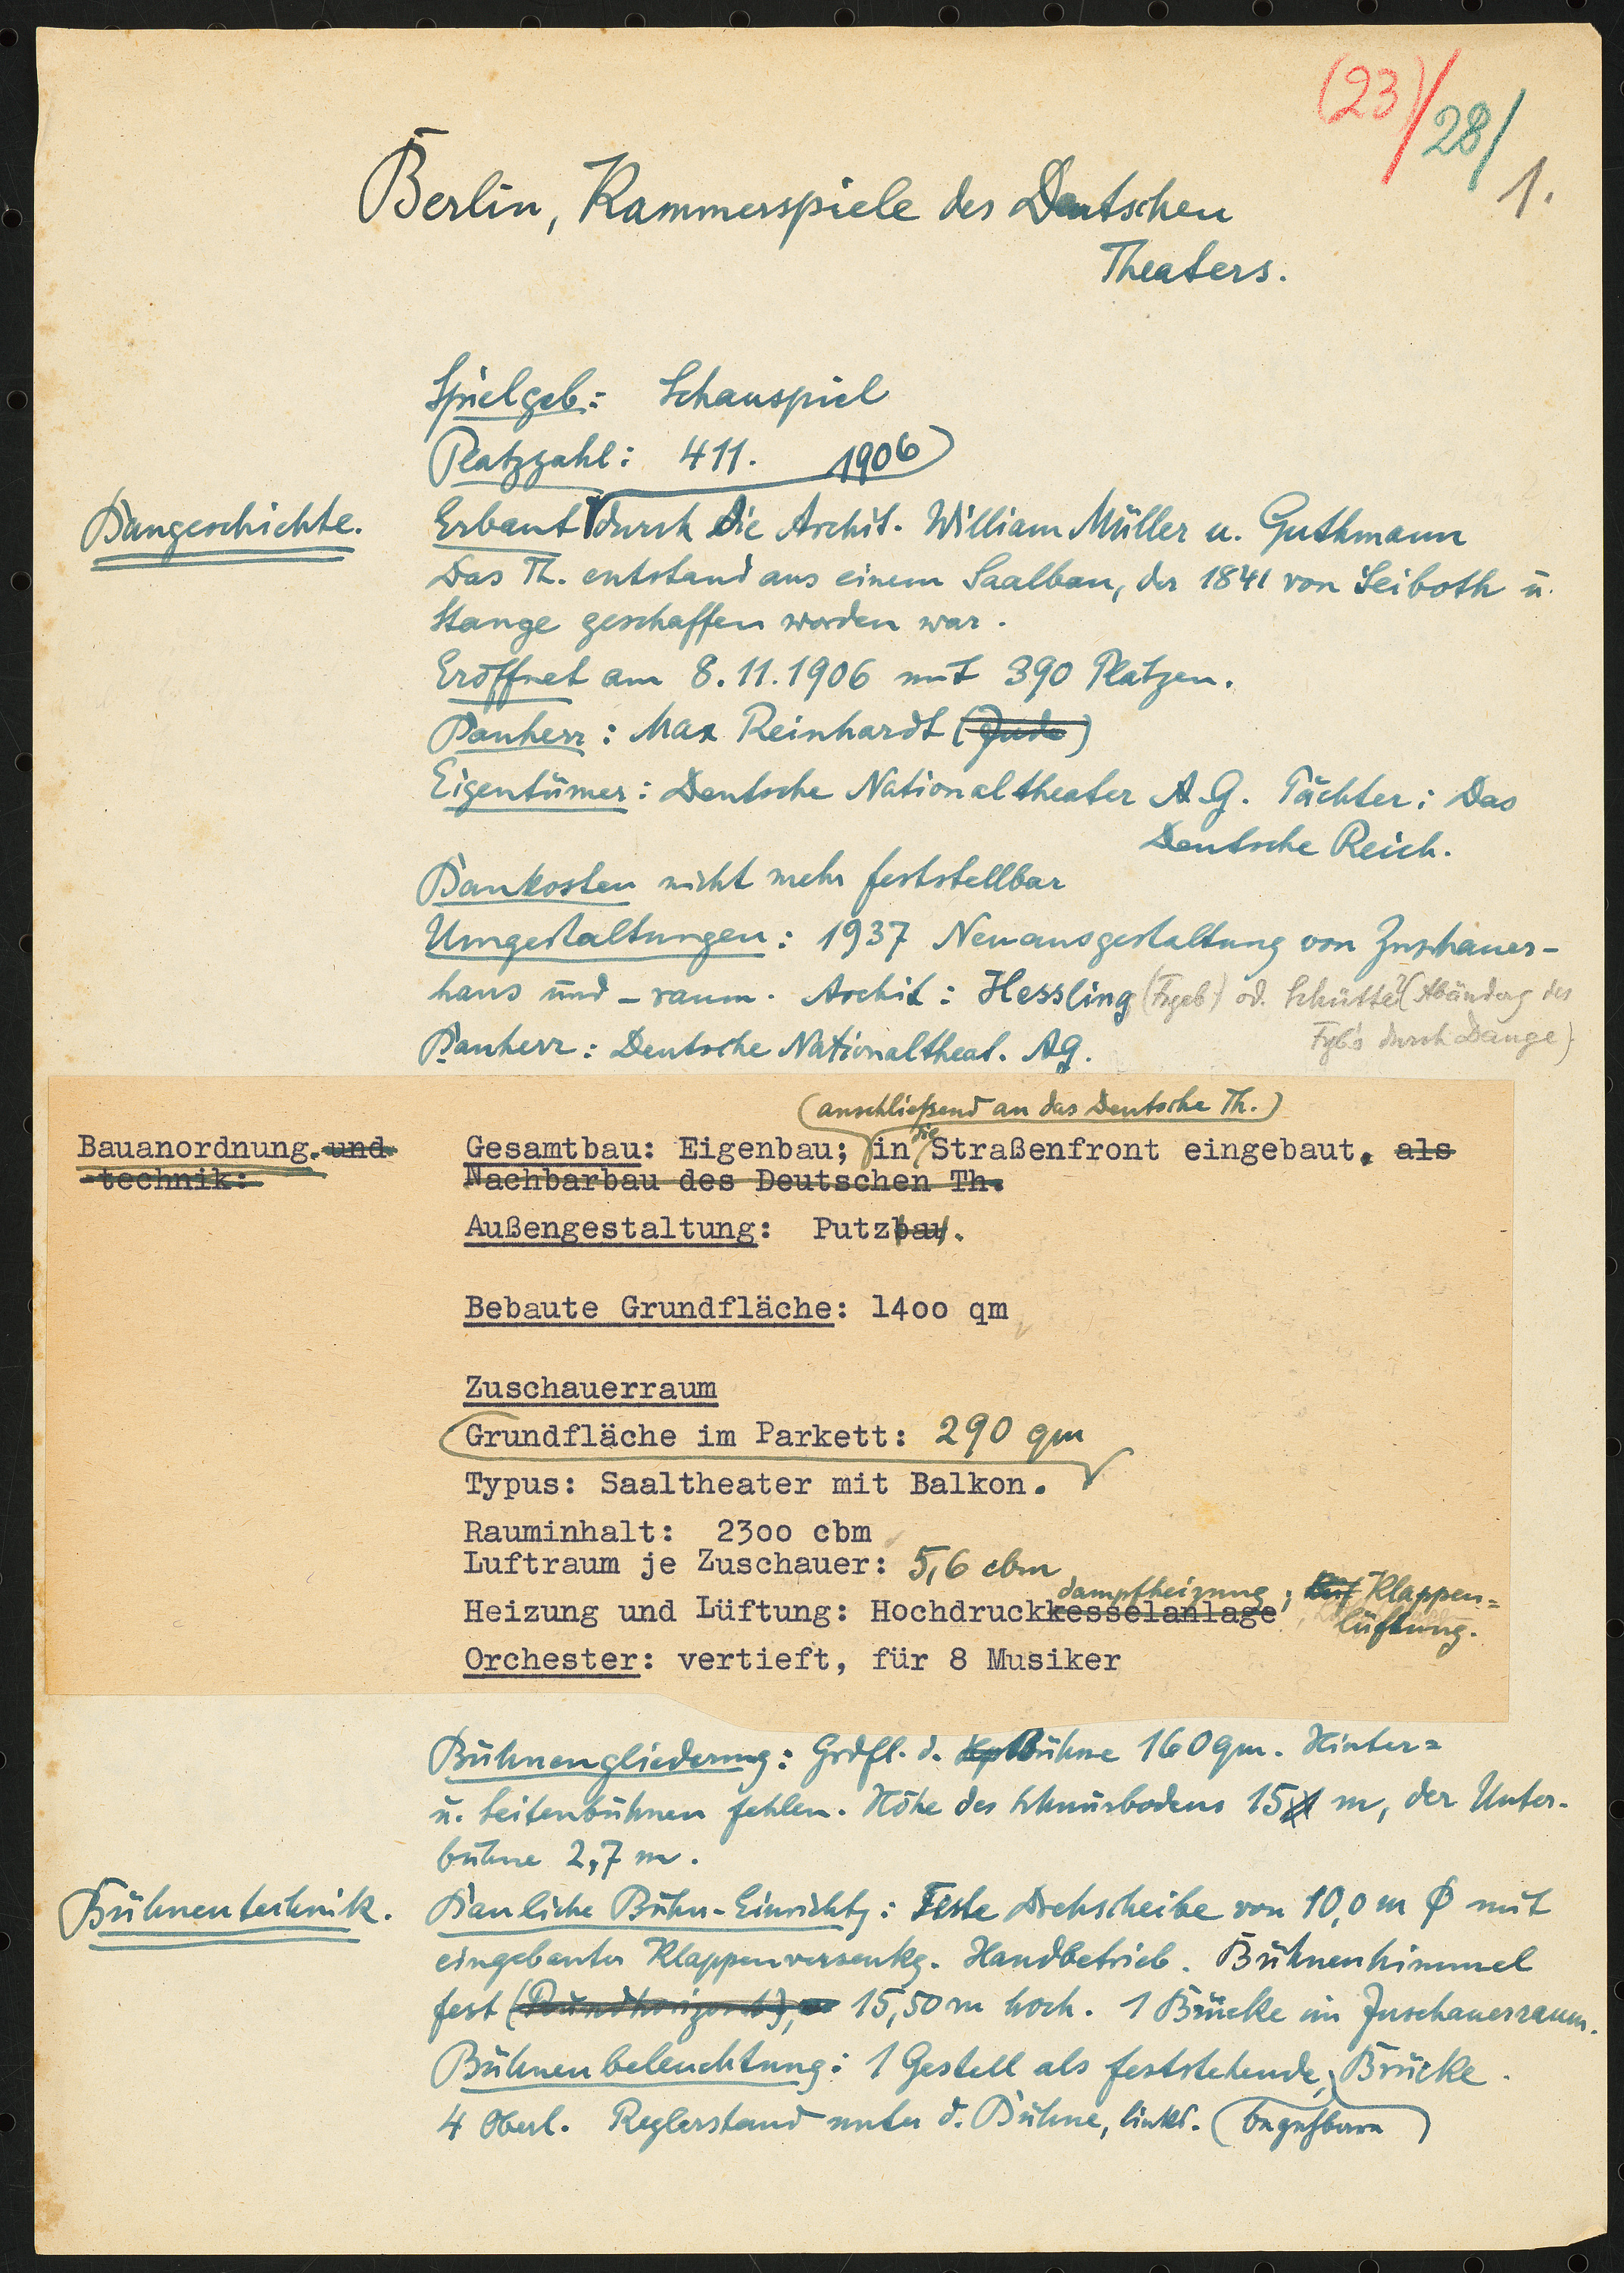 (23)/ 28/ 1.
Berlin, Kammerspiele des Deutschen
Theaters.
Spielgeb.: Schauspiel
Platzzahl: 411. 1906
Baugeschichte. Erbaut durch die Archit. William Müller u. Guthmann
Das Th. entstand aus einem Saalbau, der 1841 von Seiboth u.
Stange geschaffen worden war.
Eröffnet am 8.11.1906 mit 390 Plätzen.
Bauherr: Max Reinhardt (Jude)
Eigentümer: Deutsche Nationaltheater A.G. Pächter: Das
Deutsche Reich.
Baukosten nicht mehr feststellbar
Umgestaltungen: 1937 Neuausgestaltung von Zuschauer-
haus und -raum. Archit: Hessling (Frgeb.) od. Schütte? (Abänderg des
Fgb's durch Dange)
Bauherr: Deutsche Nationaltheat. AG.
(anschließend an das Deutsche Th.)
Bauanordnung. und Gesamtbau: Eigenbau; in die Straßenfront eingebaut. als
-technik: Nachbarbau des Deutschen Th.
Außengestaltung: Putzbau.
Bebaute Grundfläche: 14oo qm
Zuschauerraum
Grundfläche im Parkett: 290 qm
Typus: Saaltheater mit Balkon.
Rauminhalt: 23oo cbm
Luftraum je Zuschauer: 5,6 cbm
dampfheizung; Klappen=
Heizung und Lüftung: Hochdruckkesselanlage lüftung.
Orchester: vertieft, für 8 Musiker
Bühnengliederung: Grdfl. d. Hptbühne 160 qm. Hinter=
u. Seitenbühnen fehlen. Höhe des Schnürbodens 15 m, der Unter-
bühne 2,7 m.
Bühnentechnik. Bauliche Bühn-Einrichtg: Feste Drehscheibe von 10,0 m Ø mit
eingebauter Klappenversenkg. Handbetrieb. Bühnenhimmel
fest (Rundhorizont), 15,50 m hoch. 1 Brücke im Zuschauerraum.
Bühnenbeleuchtung: 1 Gestell als feststehende, Brücke.
4 Oberl. Reglerstand unter d. Bühne, links. (begehbare)